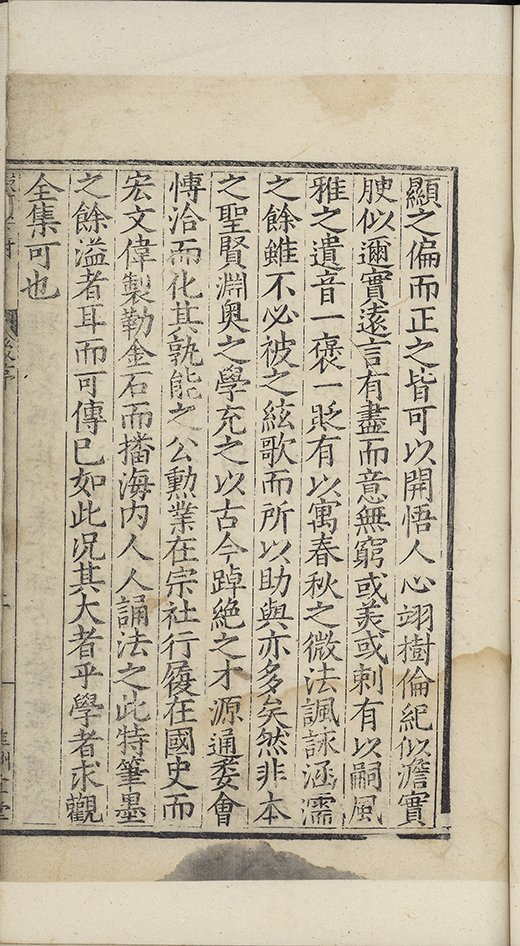 顯之偏而正之皆可以開悟人心翊樹倫紀似澹實
腴似邇實遠言有盡而意無窮或美或刺有以嗣風
雅之遺音一褒一貶有以寓春秋之微法諷詠涵濡
之餘雖不必被之絃歌而所以助與亦多矣然非本
之聖賢淵奥之學充之以古今踔絶之才源通委會
慱洽而化其孰能之公勲業在宗社行履在國史而
宏文偉製勒金石而播海内人人誦法之此特筆墨
之餘溢者耳而可傳已如此况其大者乎學者求觀
全集可也